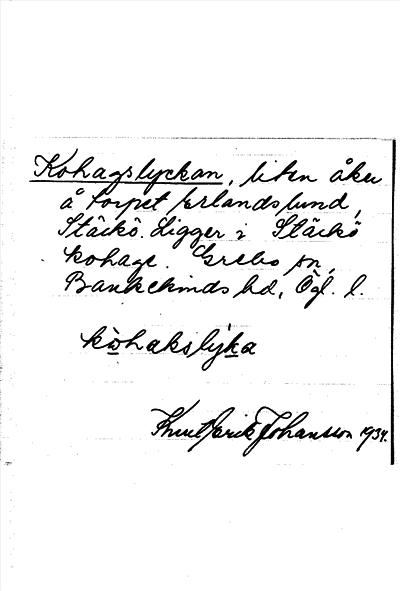 Kohagslyckan, liten åker
å torpet Erlandslund,
Stäckö. Ligger i Stäckö
kohage. Grebo sn,
Bankekinds hd, Ög. l.
kòhakslýka
Knut Erik Johansson 1934.